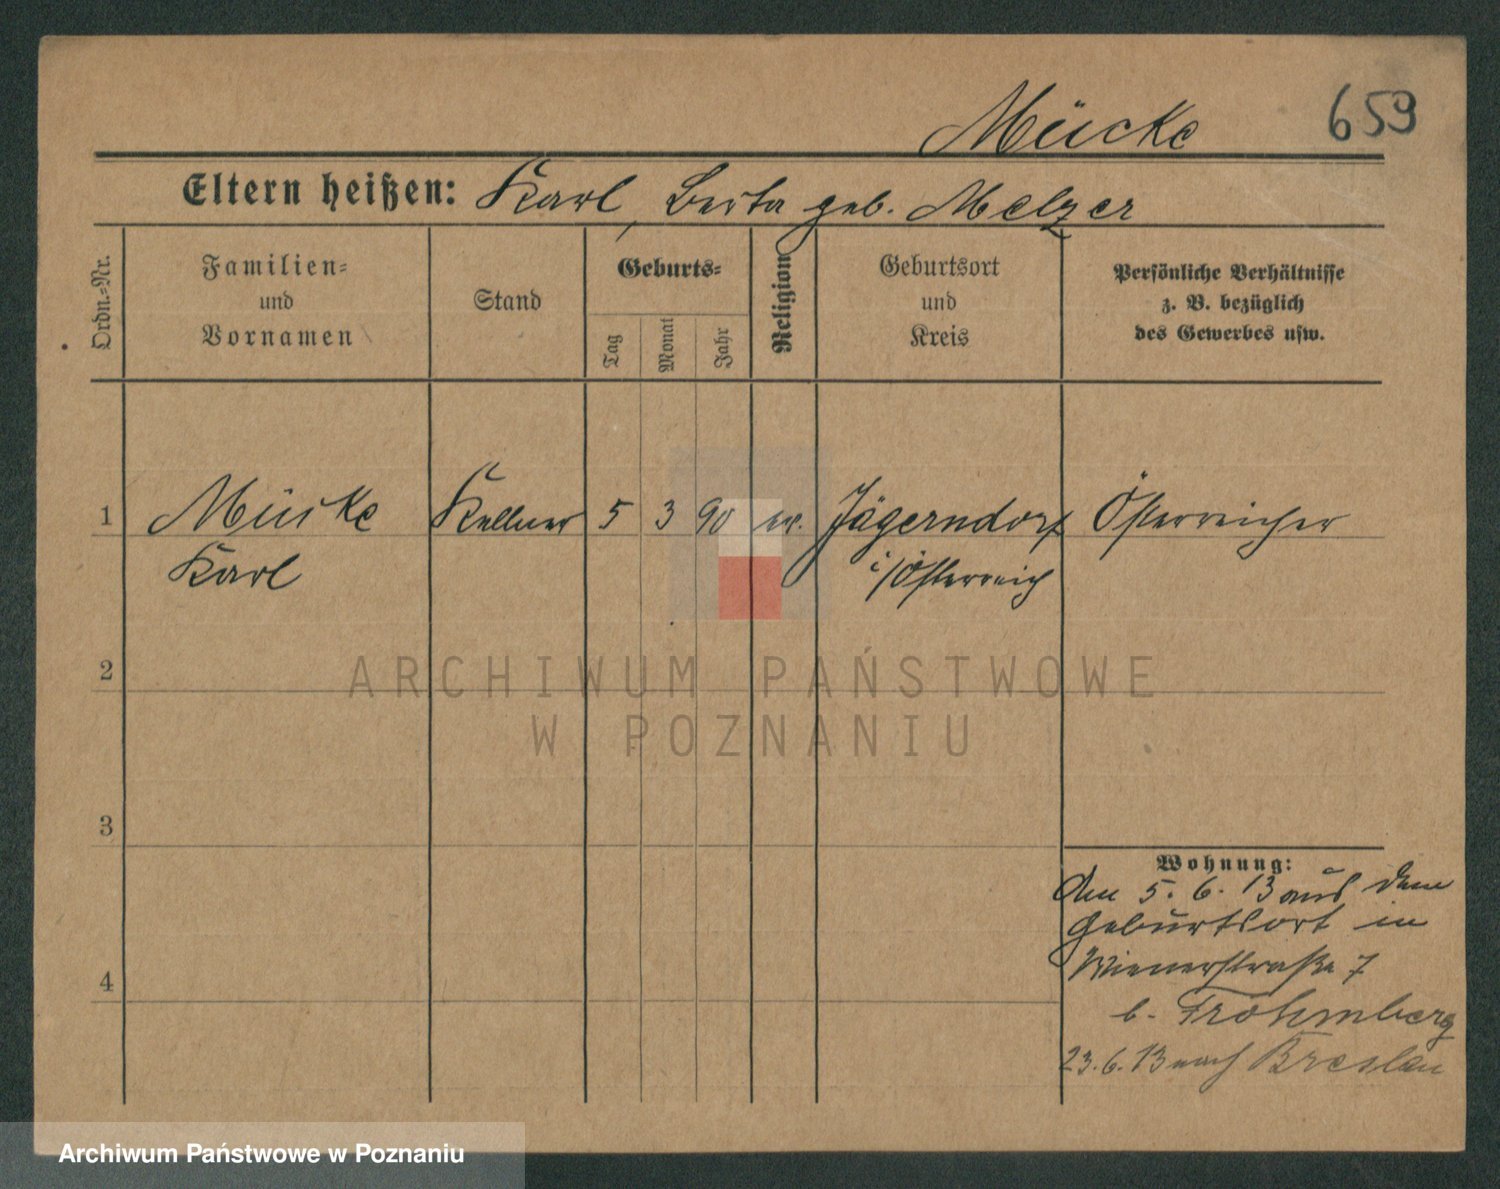 Mücke 659
Eltern heißen: Karl, Berta geb. Melzer
Ordn.-Nr.
Familien-
und
Vornamen
Stand
Geburts-
Tag
Monat
Jahr
Religion
Geburtsort
und
Kreis
Persönliche Verhältnisse
z. B. bezüglich
des Gewerbes usw.
1 Mücke Kellner 5 3 90 ev. Jägerndorf Österreicher
Karl i/Österreich
2
3
4
Wohnung:
Den 5. 6. 13 aus dem
Geburtsort in
Wienerstraße 7
b. Frohmberg
23.6.13 nach Breslau
ARCHIWUM PAŃSTWOWE
W POZNANIU
Archiwum Państwowe w Poznaniu